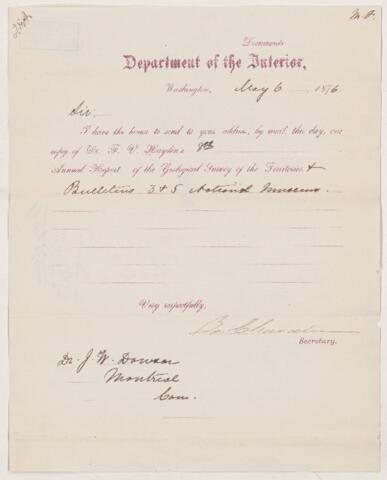 M.P.
Documents
Department of the Interior,
Washington, May 6 1876.
Sir:
I have the honor to send to your address, by mail, this day, one
copy of Dr. F. V. Hayden's 8th
Annual Report of the Geological Survey of the Territories, &
Bulletins 3 & 5 National Museum.
Very respectfully,
Secretary.
Dr. J. W. Dawson
Montreal
Can.